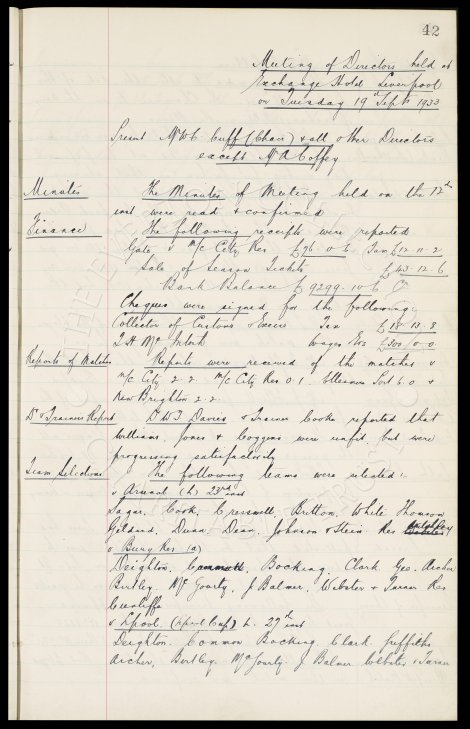 42
Meeting of Directors held at
Exchange Hotel Liverpool
on Tuesday 19th Sept 1933
Present Mr W C Cuff (Chair) & all other Directors
except Mr A Coffey
Minutes The Minutes of Meeting held on the 12th
inst were read & confirmed
Finance The following receipts were reported
Gate v M/c City Res £76. 0. 6 Tax £12. 11. 2
Sale of Season Tickets £43. 12. 6
Bank Balance £9299. 10. 6
Cheques were signed for the following:
Collector of Customs & Excise Tax £18. 13. 8
Wages Etc £300. 0. 0
Reports of Matches Reports were received of the matches v
M/c City 2. 2. M/c City Res 0. 1. Ellesmere Port 6. 0 &
New Brighton 2. 2.
Dr & Trainers Report Trainer Cooke reported that
Williams, Jones & Coggins were unfit but were
progressing satisfactorily
Team Selections The following teams were selected:
v Arsenal (h) 23rd inst
Sagar. Cook. Cresswell. Britton. White Thomson
Geldard. Dunn. Dean. Johnson & Stein. Res
v Bury Res (a)
Deighton. Common. Bocking. Clark Geo. Archer
Bentley. McGourty. J Balmer, Webster & Turner Res
Cunliffe
v Lpool. (Lpool Cup) h. 27th inst
Deighton. Common Bocking Clark Griffiths
Archer, Bentley. McGourty J Balmer Webster & Turner